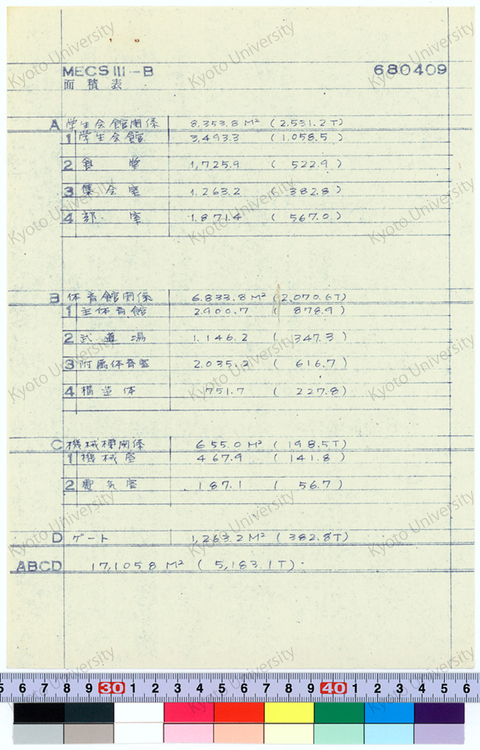 MECS III-B 680409
面積表
A 学生会館関係 8,353.8 M² (2,531.2T)
1 学生会館 3,493.3 (1,058.5)
2 食堂 1,725.9 (522.9)
3 集会室 1,263.2 (382.8)
4 部室 1,871.4 (567.0)
B 体育館関係 6,833.8 M² (2,070.6T)
1 主体育館 2,900.7 (878.9)
2 武道場 1,146.2 (347.3)
3 附属体育室 2,035.2 (616.7)
4 構造体 751.7 (227.8)
C 機械棟関係 655.0 M² (198.5T)
1 機械室 467.9 (141.8)
2 電気室 187.1 (56.7)
D ゲート 1,263.2 M² (382.8T)
ABCD 17,105.8 M² (5,183.1T)
5 6 7 8 9 30 1 2 3 4 5 6 7 8 9 40 1 2 3 4 5 6
Kyoto University
Kyoto University
Kyoto University
Kyoto University
Kyoto University
Kyoto University
Kyoto University
Kyoto University
Kyoto University
Kyoto University